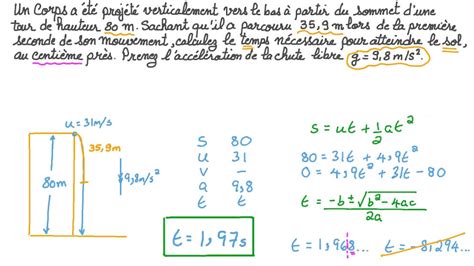 Un Corps a été projeté verticalement vers le bas à partir du sommet d'une
tour de hauteur 80 m. Sachant qu'il a parcouru 35,9 m lors de la première
seconde de son mouvement, calculez le temps nécessaire pour atteindre le sol,
au centième près. Prenez l'accélération de la chute libre g = 9,8 m/s².
u = 31 m/s
35,9m
80m
9,8m/s²
S 80
u 31
v –
a 9,8
t t
t = 1,97s
s = ut + 1/2 at²
80 = 31t + 4,9t²
0 = 4,9t² + 31t - 80
t = (-b ± √(b² - 4ac)) / 2a
t = 1,968... t = -8,294...